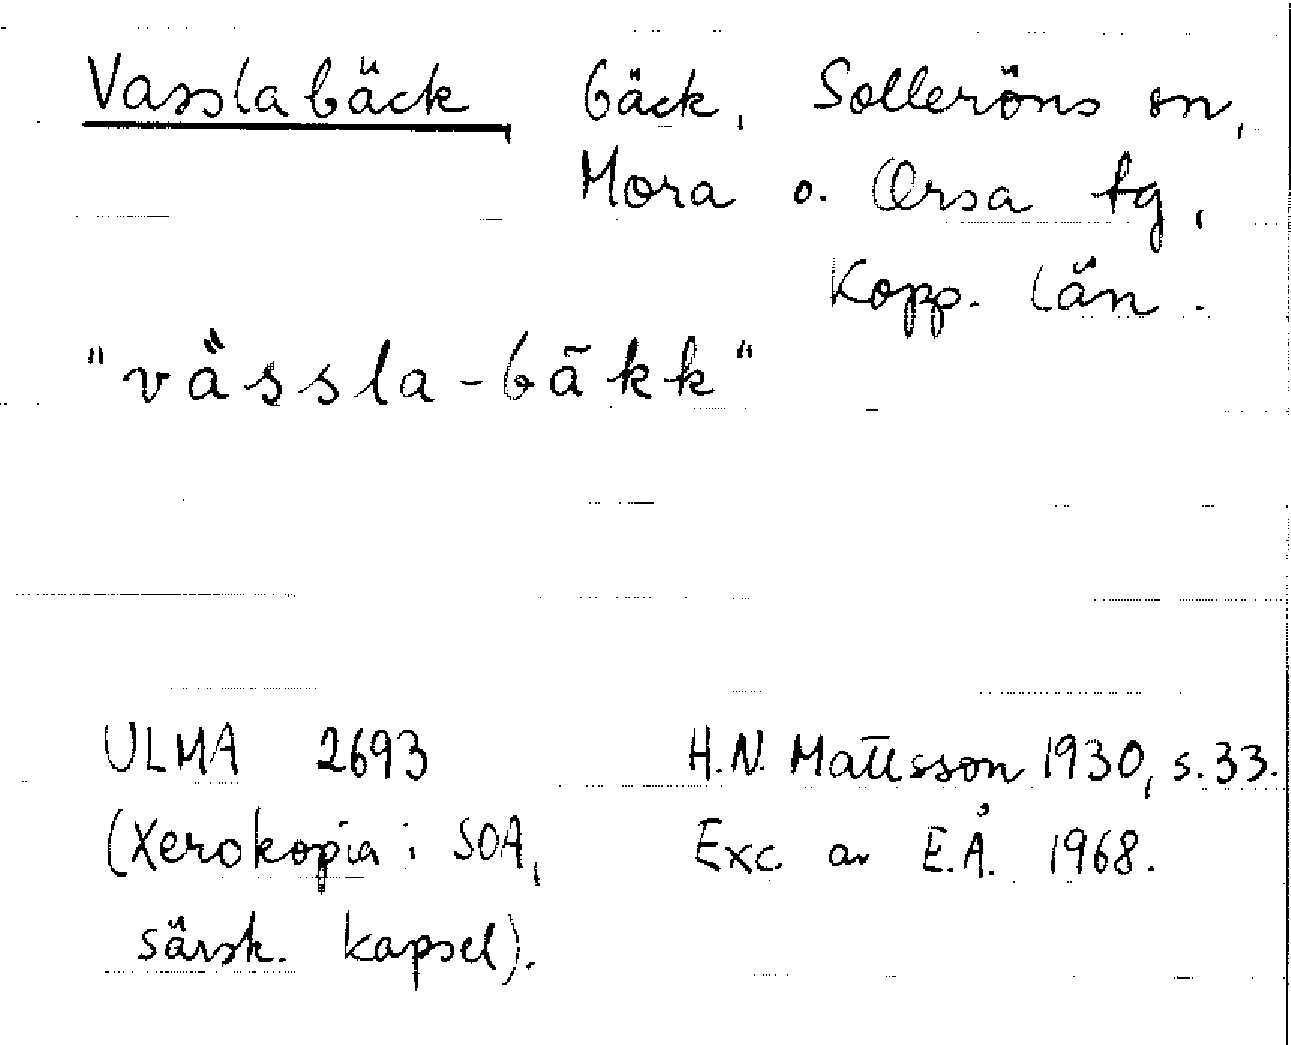 Vasslabäck bäck, Solleröns sn,
Mora o. Orsa tg,
Kopp. län.
"vässla-bäkk"
ULMA 2693 H.N. Mattsson 1930, s. 33.
(Xerokopia i SOA, Exc. av E.Å. 1968.
särsk. kapsel).